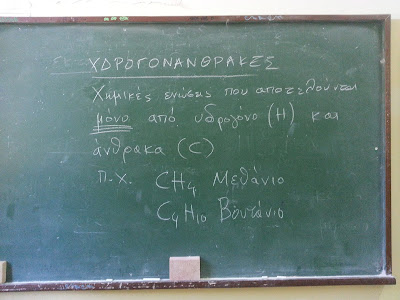 ΥΔΡΟΓΟΝΑΝΘΡΑΚΕΣ
Χημικές ενώσεις που αποτελούνται
μόνο από υδρογόνο (Η) και
άνθρακα (C)
π.χ. CH₄ Μεθάνιο
C₄H₁₀ Βουτάνιο